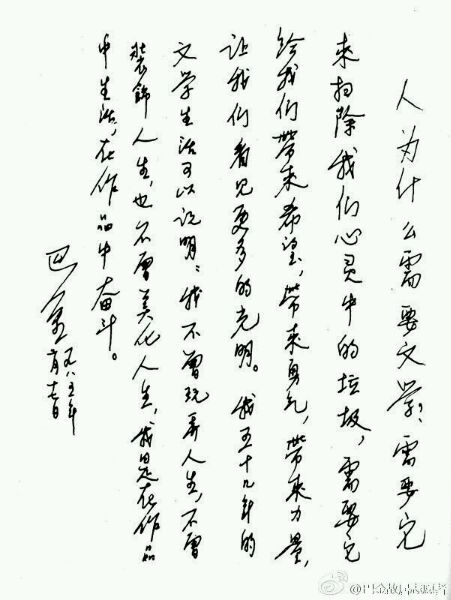 人为什么需要文学？需要它
来扫除我们心灵中的垃圾，需要它
给我们帶来希望，帶来勇气，帶来力量，
让我们看见更多的光明。我五十九年的
文学生活可以说明：我不曾玩弄人生，不曾
裝飾人生，也不曾美化人生，我是在作品
中生活，在作品中奋斗。
巴金
八五年
月十七日